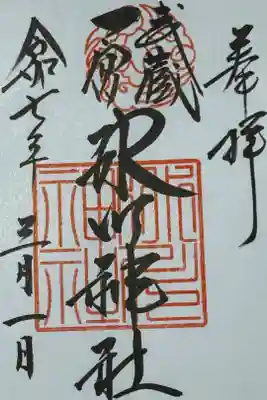 奉拝
武蔵
一宮
氷川神社
令和七年
三月一日